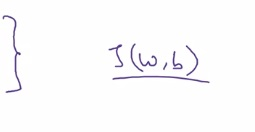 } J(w,b)